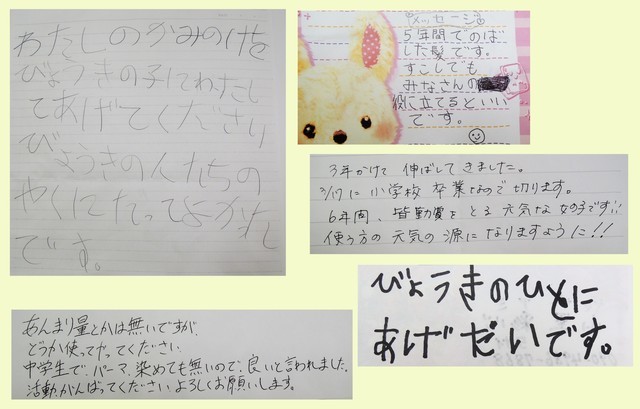 わたしのかみのけを
びょうきの子にわたし
てあげてください
びょうきの人たちの
やくにたってよかった
です。
メッセージ
5年間でのば
した髪です。
すこしでも
みなさんの
役に立てるといい
です。
3年かけて 伸ばしてきました。
3/17に小学校 卒業なので切ります。
6年間、皆勤賞をとる元気な女の子です!!
使う方の元気の源になりますように!!
びょうきのひとに
あげだいです。
あんまり量とかは無いですが、
どうか使ってやってください。
中学生で、パーマ、染めても無いので、良いと言われました。
活動、がんばってください。よろしくお願いします。